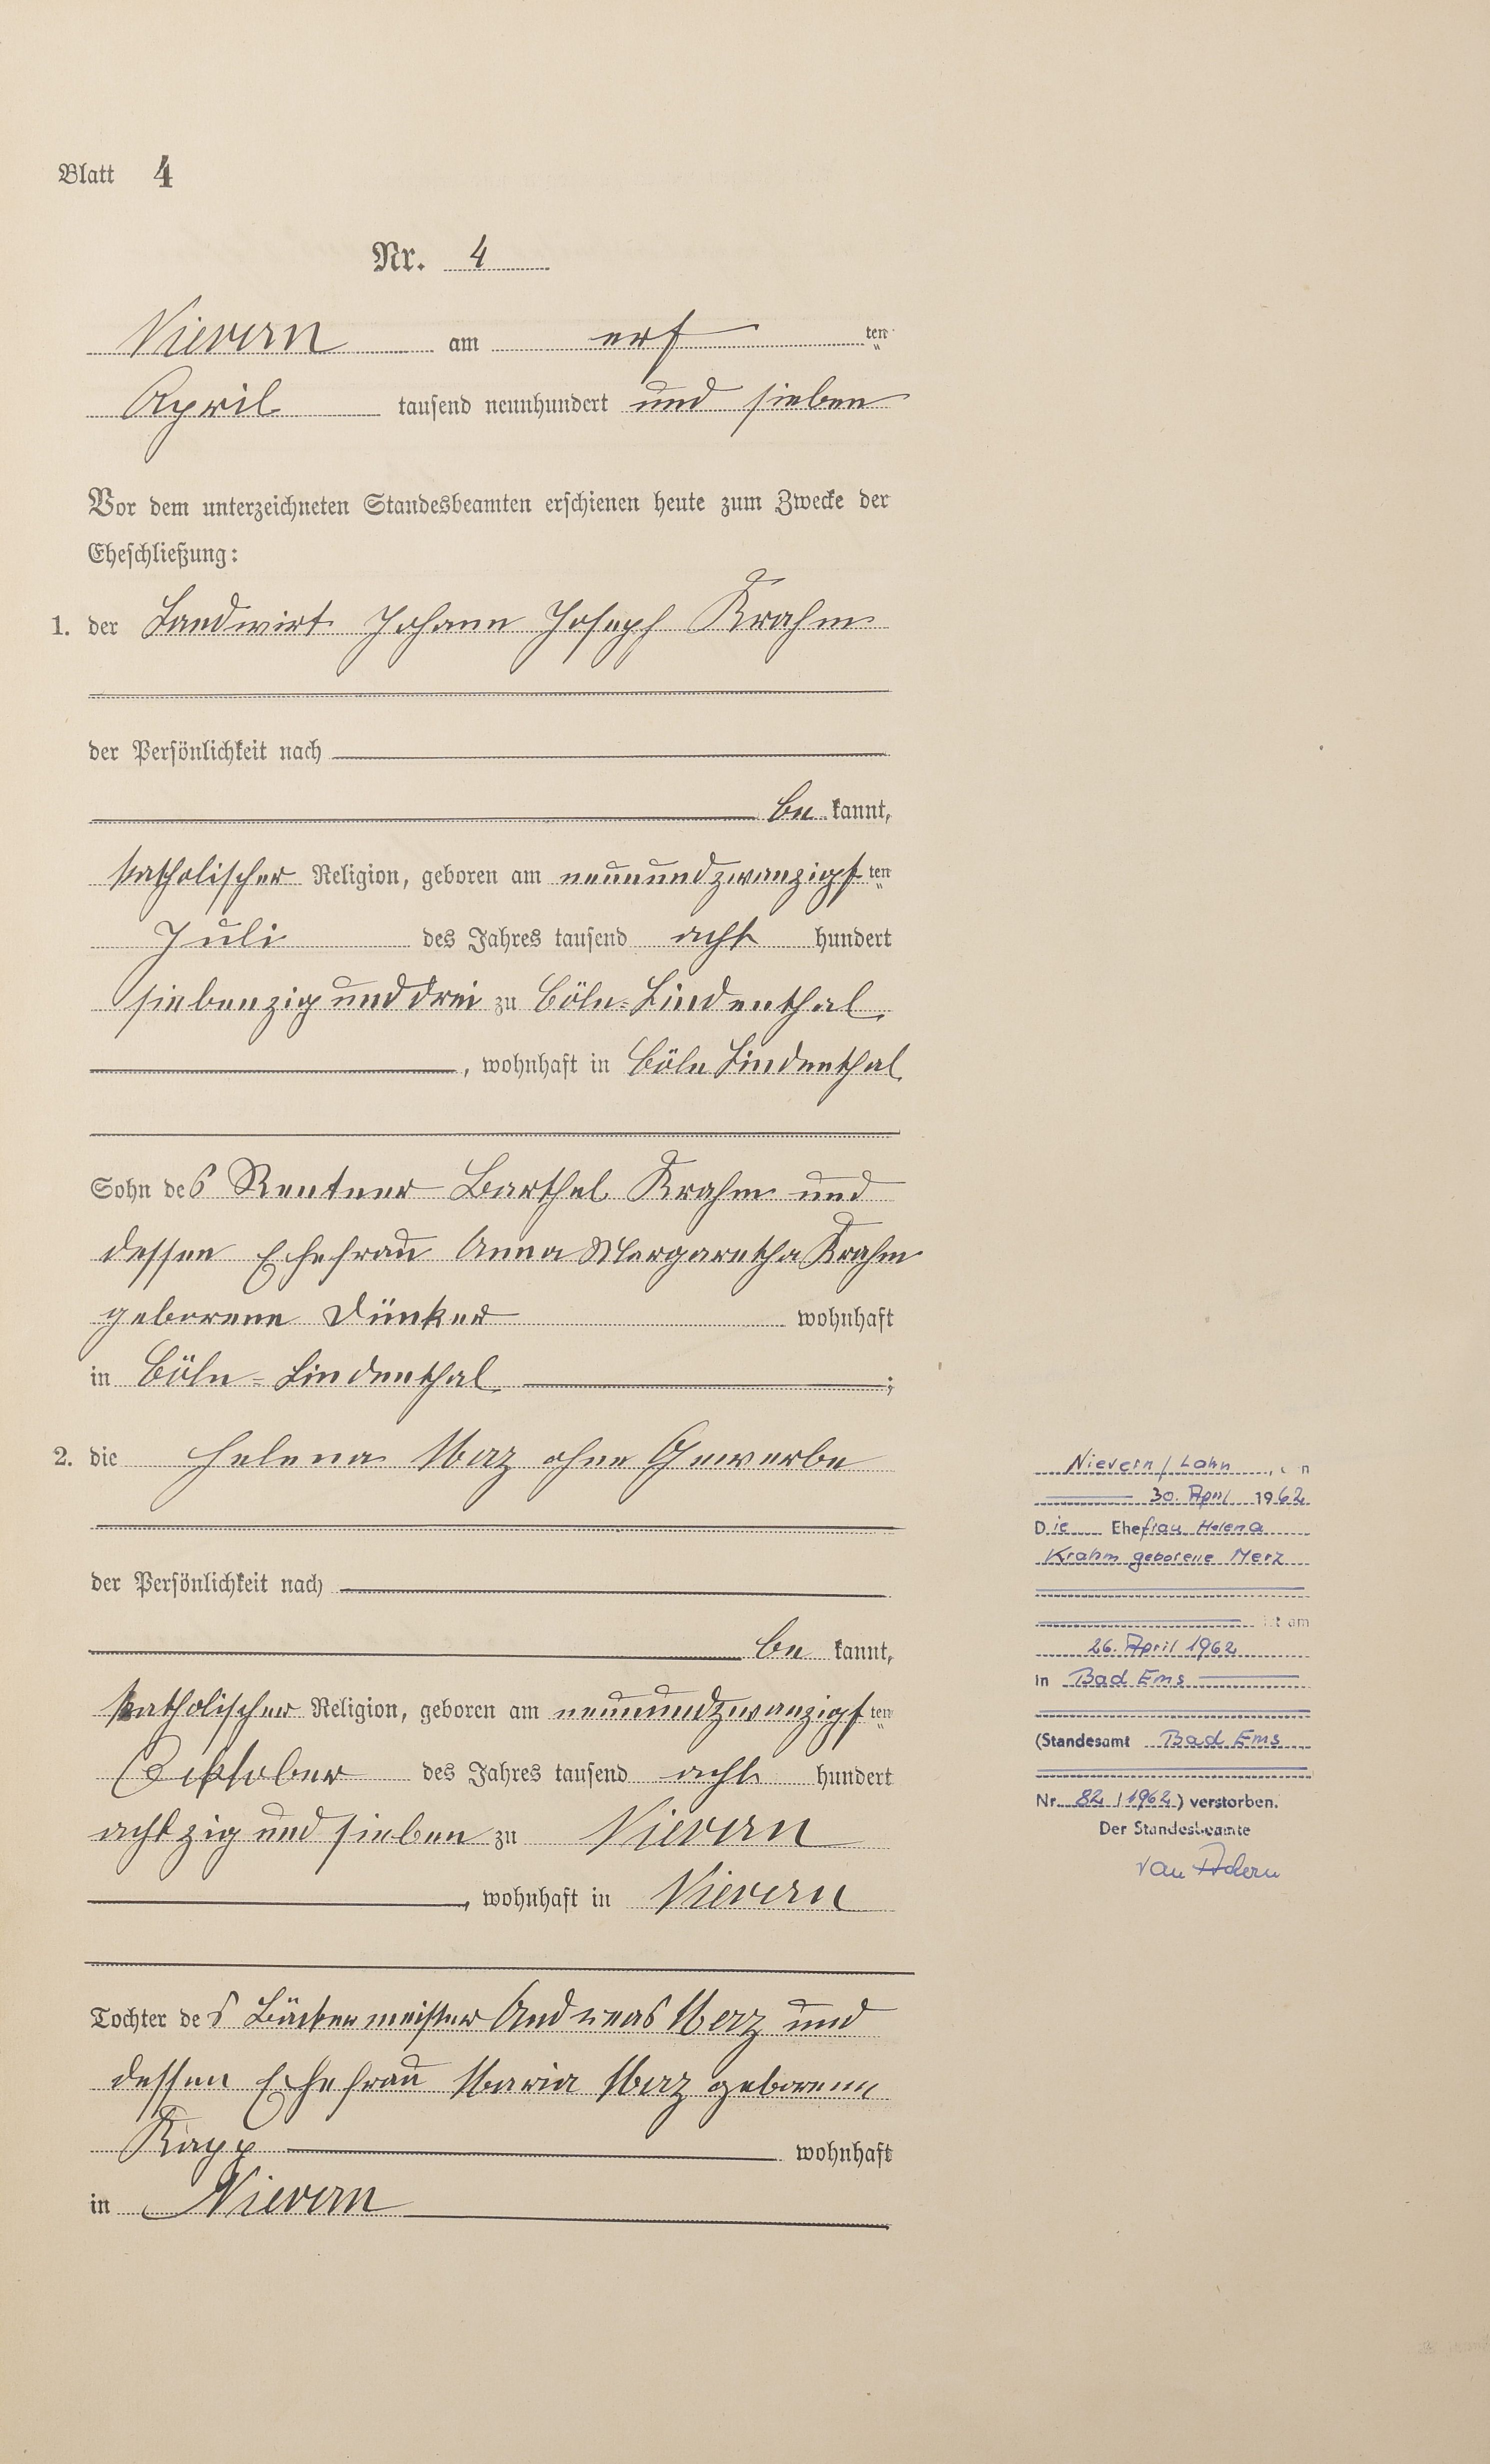 Blatt 4
Nr. 4
Nievern am
ten
April tausend neunhundert und sieben
Vor dem unterzeichneten Standesbeamten erschienen heute zum Zwecke der
Eheschließung:
1. der Landwirt Johann Joseph Krahm
der Persönlichkeit nach
be kannt,
katholischer Religion, geboren am neunundzwanzigsten
Juli des Jahres tausend acht hundert
siebenzig und drei zu Cöln-Lindenthal
, wohnhaft in Cöln Lindenthal
Sohn des Rentner Barthel Krahm und
dessen Ehefrau Anna Margaretha Krahm
geborene Dünker wohnhaft
in Cöln-Lindenthal ;
2. die Helena Merz ohne Gewerbe
der Persönlichkeit nach
be kannt,
katholischer Religion, geboren am neunundzwanzigsten
Oktober des Jahres tausend acht hundert
achtzig und sieben zu Nievern
, wohnhaft in Nievern
Tochter des Bäckermeister Andreas Merz und
dessen Ehefrau Maria Merz geborene
Kapp wohnhaft
in Nievern
Nievern/Lahn, den
30. April 1962
Die Ehefrau Helena
Krahm geborene Merz
ist am
26. April 1962
in Bad Ems
(Standesamt Bad Ems
Nr. 82/1962) verstorben.
Der Standesbeamte